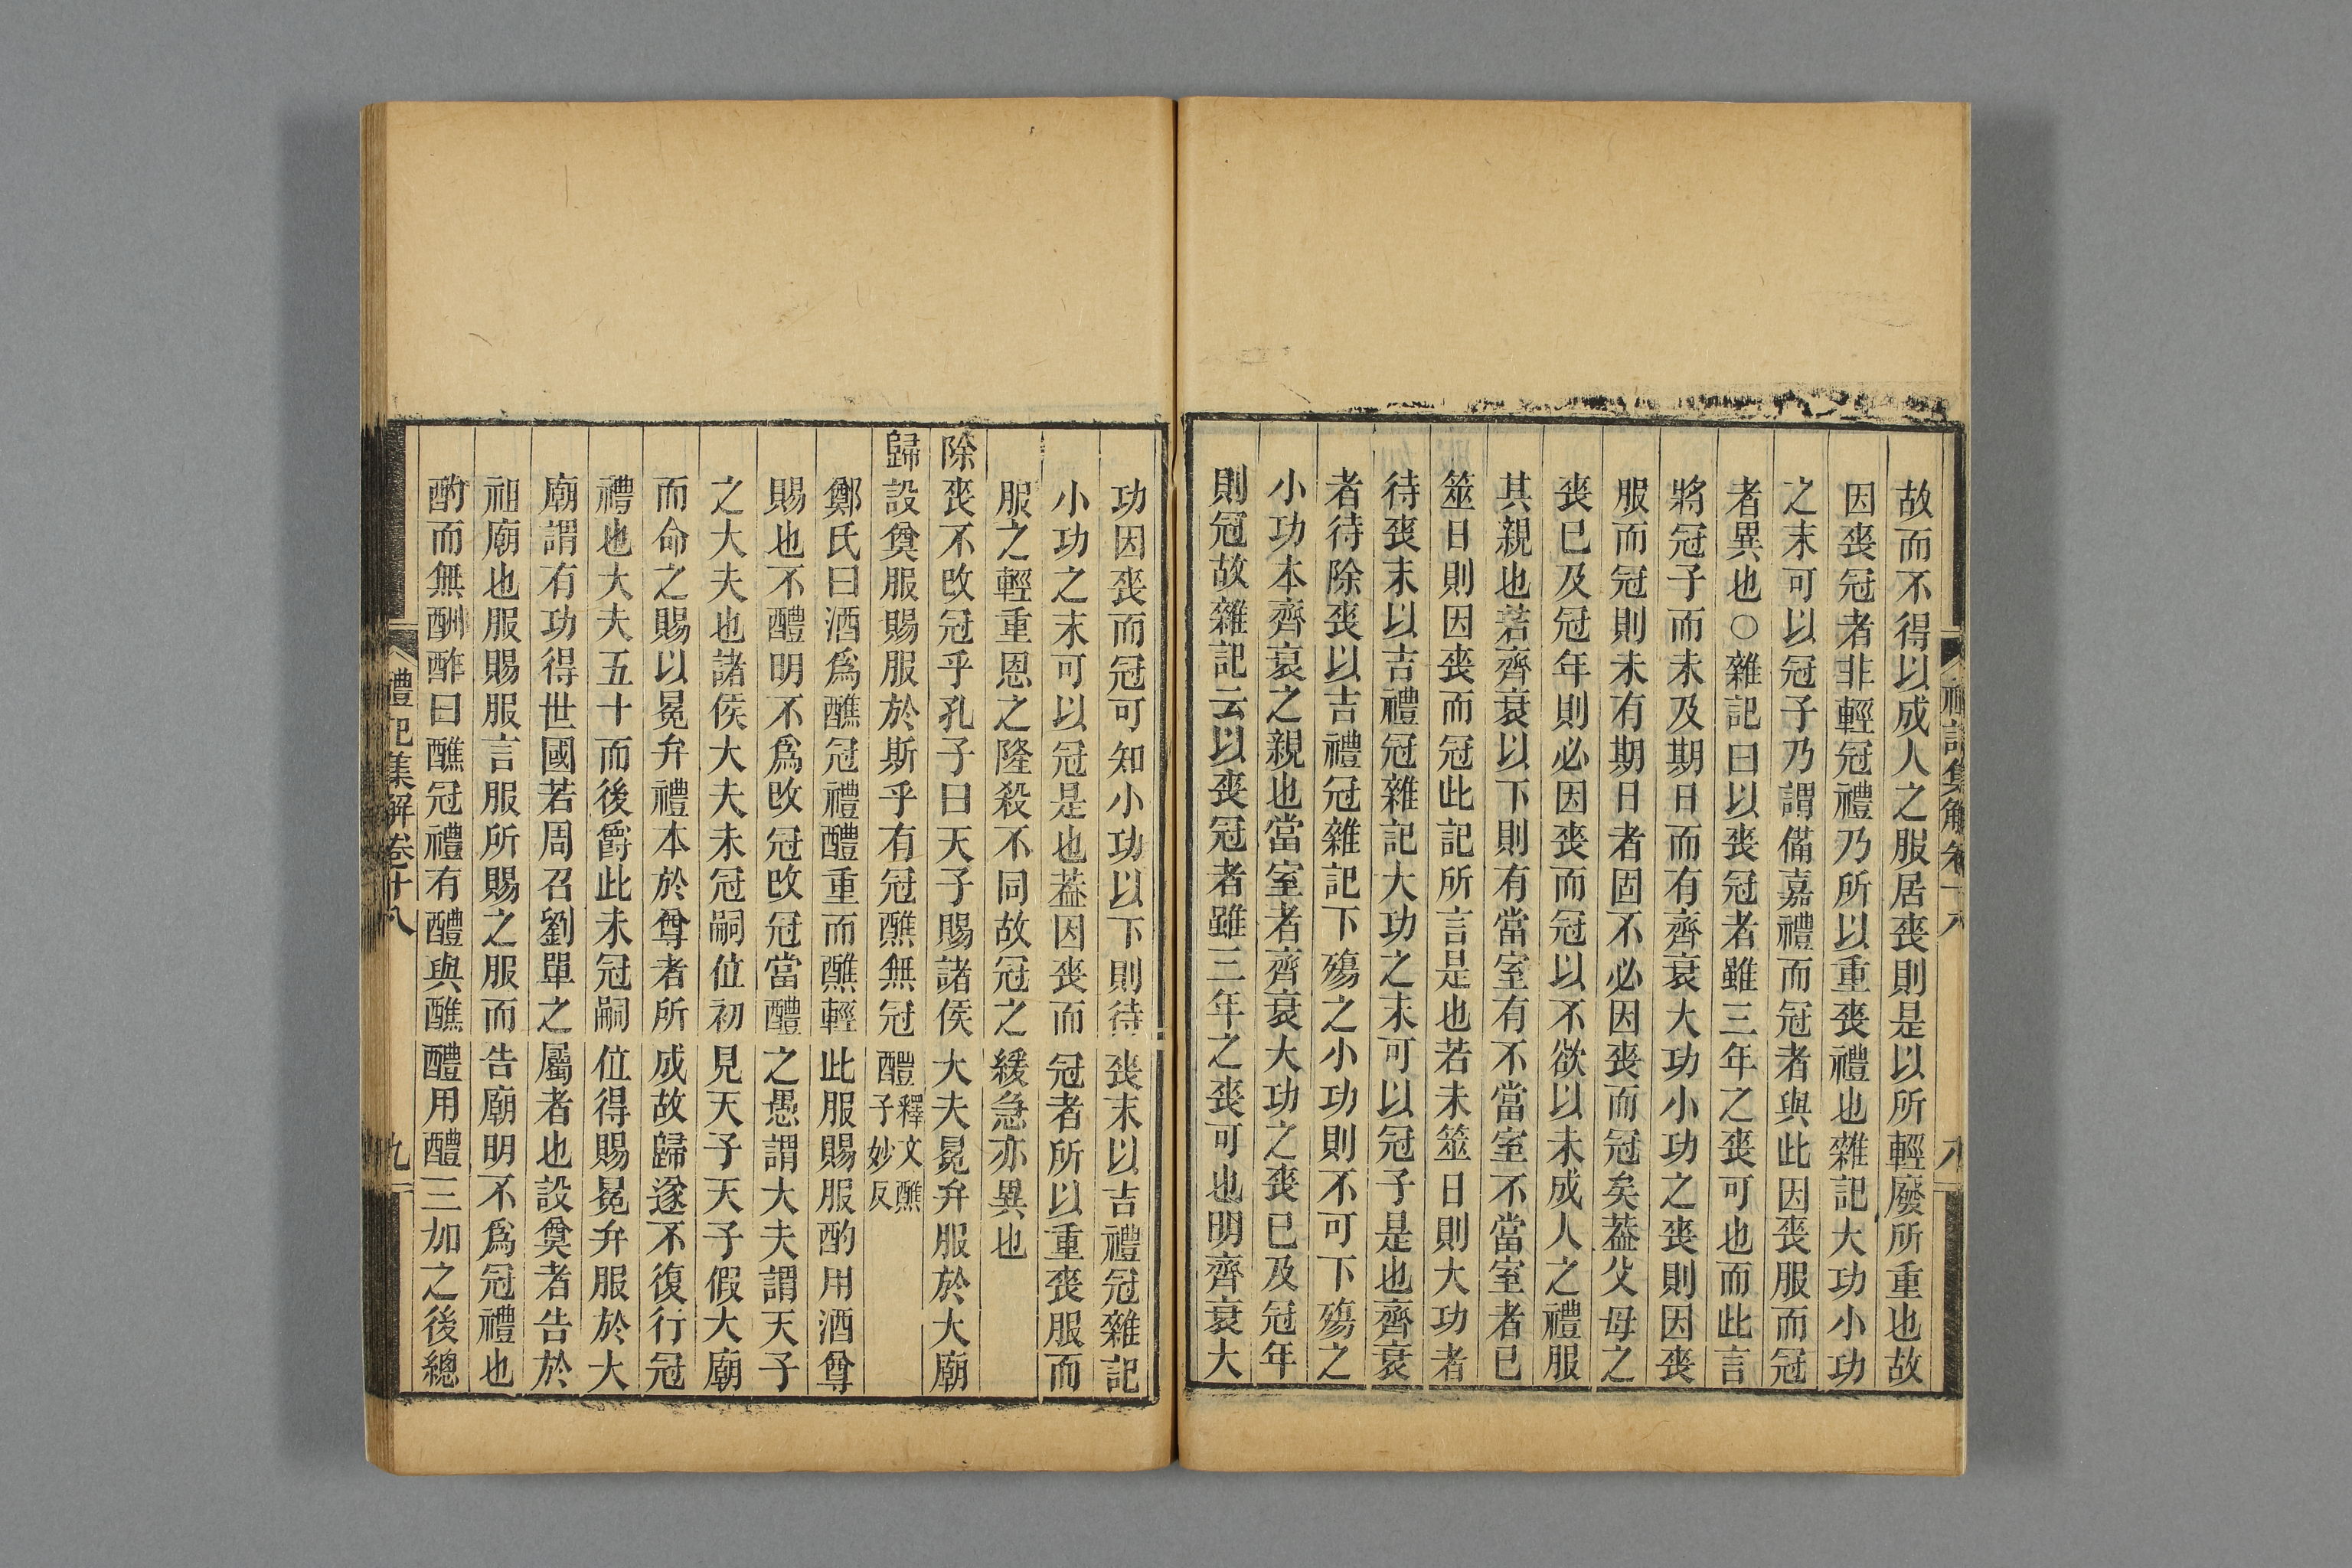 禮記集解卷十八
八
故而不得以成人之服居喪則是以所輕廢所重也故
因喪冠者非輕冠禮乃所以重喪禮也雜記大功小功
之末可以冠子乃謂備嘉禮而冠者與此因喪服而冠
者異也○雜記曰以喪冠者雖三年之喪可也而此言
將冠子而未及期日而有齊衰大功小功之喪則因喪
服而冠則未有期日者固不必因喪而冠矣葢父母之
喪已及冠年則必因喪而冠以不欲以未成人之禮服
其親也若齊衰以下則有當室有不當室不當室者已
筮日則因喪而冠此記所言是也若未筮日則大功者
待喪末以吉禮冠雜記大功之末可以冠子是也齊衰
者待除喪以吉禮冠雜記下殤之小功則不可下殤之
小功本齊衰之親也當室者齊衰大功之喪已及冠年
則冠故雜記云以喪冠者雖三年之喪可也明齊衰大
功因喪而冠可知小功以下則待喪末以吉禮冠雜記
小功之末可以冠是也葢因喪而冠者所以重喪服而
服之輕重恩之隆殺不同故冠之緩急亦異也
除喪不改冠乎孔子曰天子賜諸侯大夫冕弁服於大廟
歸設奠服賜服於斯乎有冠醮無冠醴釋文醮子妙反
鄭氏曰酒爲醮冠禮醴重而醮輕此服賜服酌用酒尊
賜也不醴明不爲改冠改冠當醴之愚謂大夫謂天子
之大夫也諸侯大夫未冠嗣位初見天子天子假大廟
而命之賜以冕弁禮本於尊者所成故歸遂不復行冠
禮也大夫五十而後爵此未冠嗣位得賜冕弁服於大
廟謂有功得世國若周召劉單之屬者也設奠者告於
祖廟也服賜服言服所賜之服而告廟明不爲冠禮也
酌而無酬酢曰醮冠禮有醴與醮醴用醴三加之後總
禮記集解卷十八
九